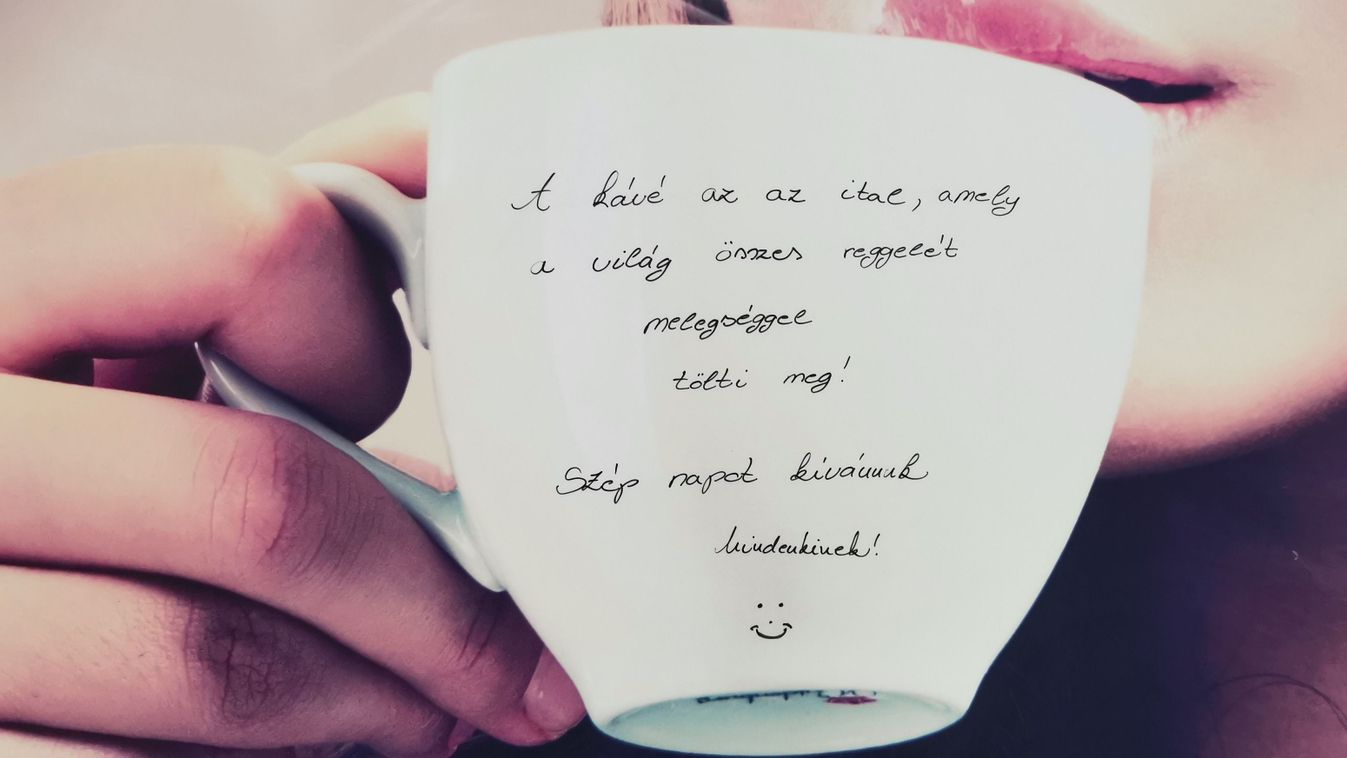 A kávé az az ital, amely
a világ összes reggelét
melegséggel
tölti meg!
Szép napot kívánunk
Mindenkinek!